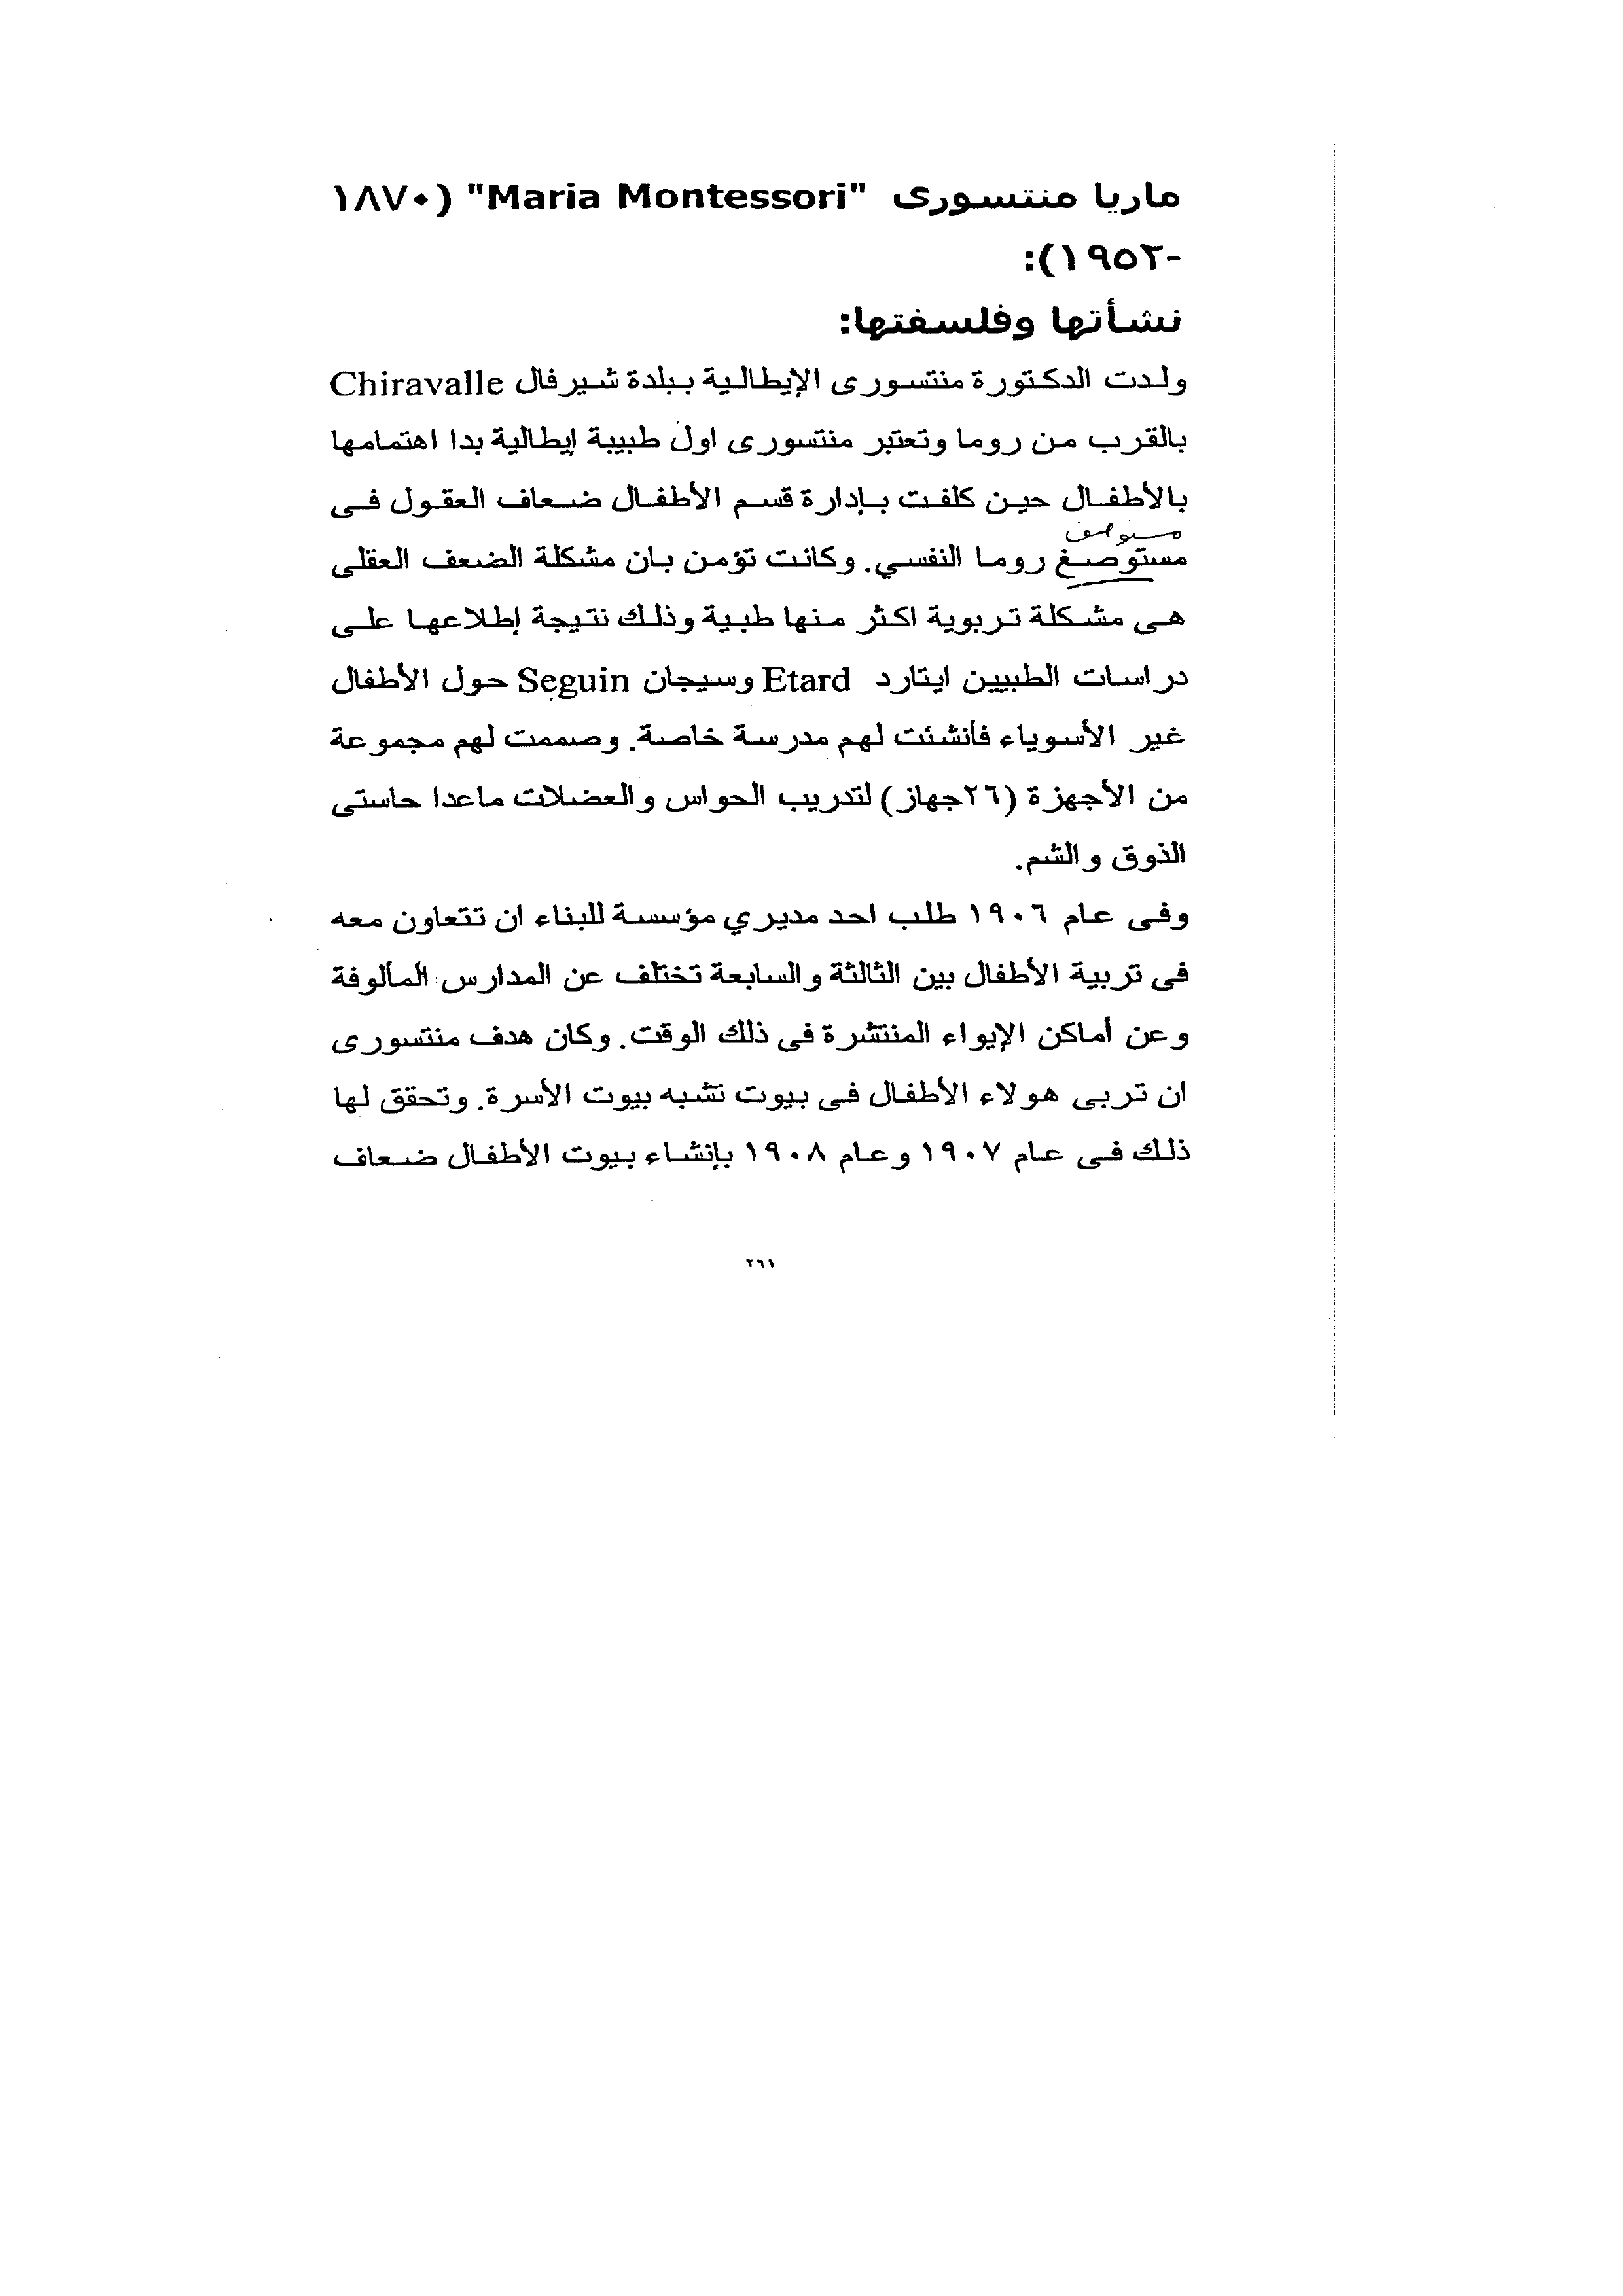 ماريا منتسورى "Maria Montessori" (١٨٧٠
-١٩٥٢):
نشأتها وفلسفتها:
ولدت الدكتورة منتسورى الإيطالية ببلدة شيرفال Chiravalle
بالقرب من روما وتعتبر منتسورى اول طبيبة إيطالية بدا اهتمامها
بالأطفال حين كلفت بإدارة قسم الأطفال ضعاف العقول فى
مستوصف
مستوصغ روما النفسي. وكانت تؤمن بان مشكلة الضعف العقلى
هى مشكلة تربوية اكثر منها طبية وذلك نتيجة إطلاعها على
دراسات الطبيين ايتارد Etard وسيجان Seguin حول الأطفال
غير الأسوياء فأنشئت لهم مدرسة خاصة. وصممت لهم مجموعة
من الأجهزة (٢٦جهاز) لتدريب الحواس والعضلات ماعدا حاستى
الذوق والشم.
وفى عام ١٩٠٦ طلب احد مديري مؤسسة للبناء ان تتعاون معه
فى تربية الأطفال بين الثالثة والسابعة تختلف عن المدارس المألوفة
وعن أماكن الإيواء المنتشرة فى ذلك الوقت. وكان هدف منتسورى
ان تربى هولاء الأطفال فى بيوت تشبه بيوت الأسرة. وتحقق لها
ذلك فى عام ١٩٠٧ وعام ١٩٠٨ بإنشاء بيوت الأطفال ضعاف
٢٦١